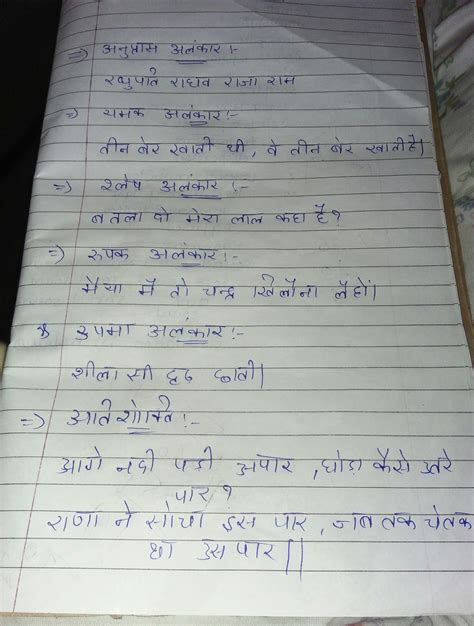 => अनुप्रास अलंकार :-
रघुपति राघव राजा राम
=> यमक अलंकार :-
तीन बेर खाती थी, वे तीन बेर खाती है।
=> श्लेष अलंकार :-
बतला दो मेरा लाल कहा है?
=> रूपक अलंकार :-
मैया मैं तो चन्द्र खिलौना लैहों।
उपमा अलंकार :-
शीला सी दृढ छाती।
=> अतिशोक्ति :-
आगे नदी पडी अपार, घोड़ा कैसे उतरे
पार ?
राणा ने सोचा इस पार, जब तक चेतक
था उस पार ||